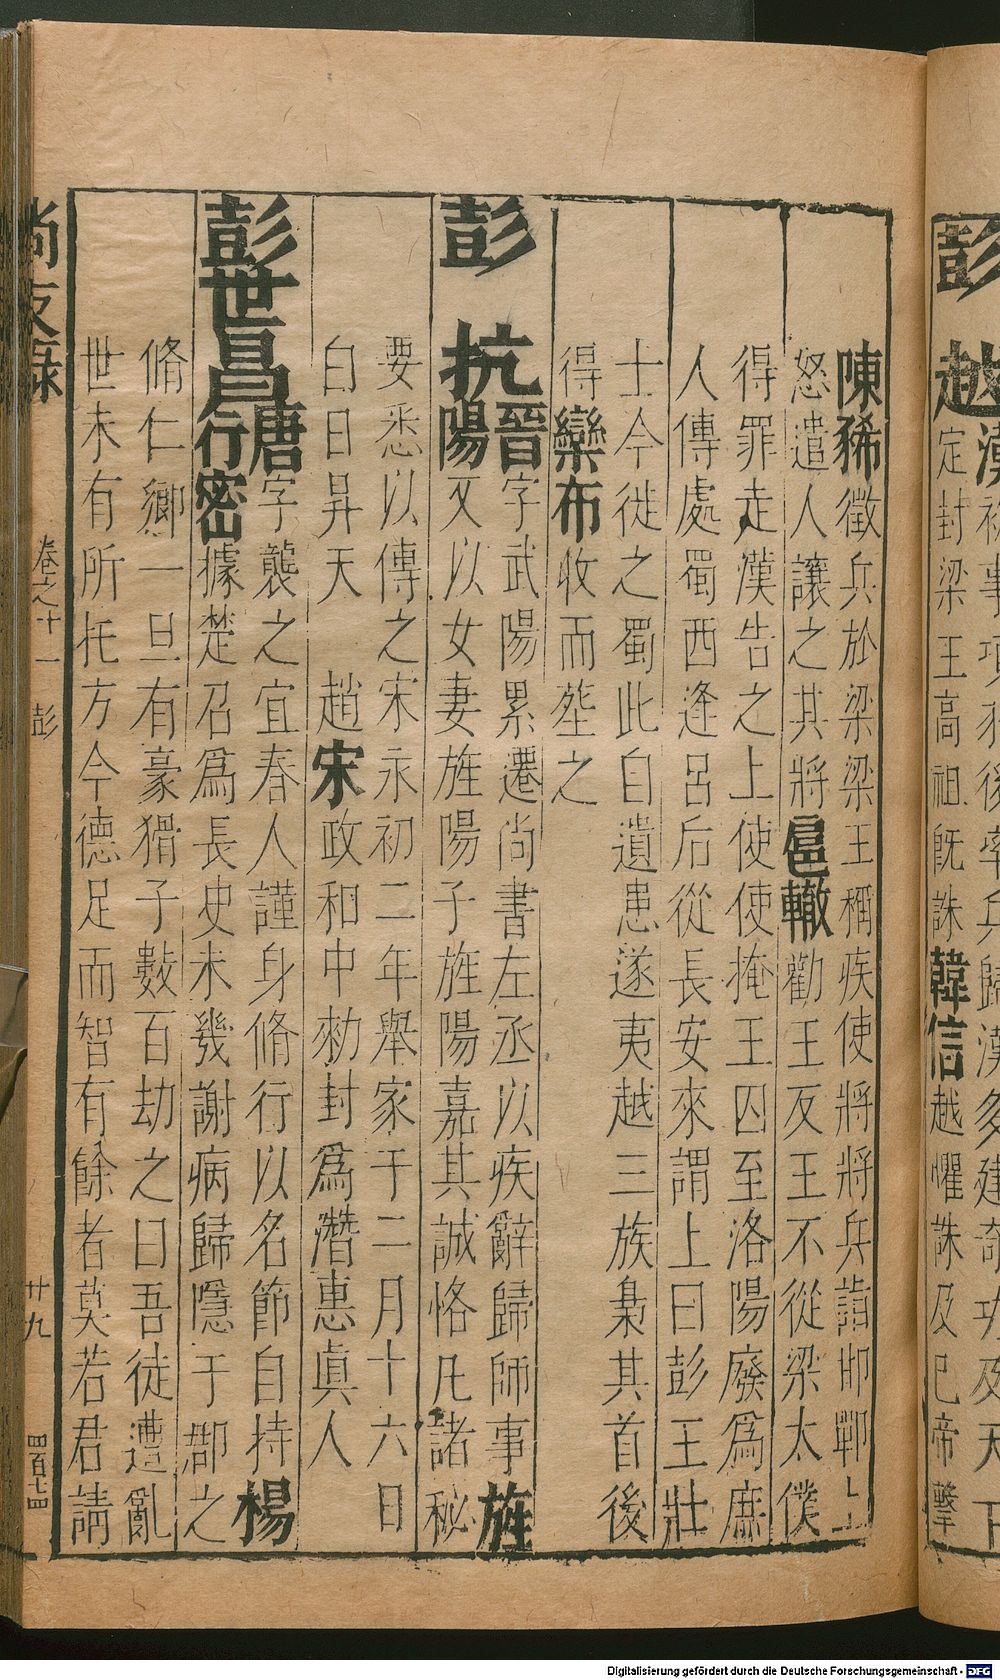 彭越漢
被事項羽後率兵歸漢多建奇功及天下
定封梁王高祖旣誅韓信越懼誅及已帝擊
陳豨徵兵於梁梁王稱疾使將將兵詣邯鄲上
怒遣人讓之其將扈轍勸王反王不從梁太僕
得罪走漢告之上使使掩王囚至洛陽廢爲庶
人傳處蜀西逢呂后從長安來謂上曰彭王壯
士今徙之蜀此自遺患遂夷越三族梟其首後
得欒布收而葬之
彭抗晉字武陽累遷尚書左丞以疾辭歸師事旌
陽又以女妻旌陽子旌陽嘉其誠恪凡諸秘
要悉以傳之宋永初二年舉家于二月十六日
白日昇天 趙宋政和中勑封爲潛惠眞人
彭世昌唐字襲之宜春人謹身脩行以名節自持楊
行密據楚召爲長史未幾謝病歸隱于郡之
脩仁鄉一旦有豪猾子數百劫之曰吾徒遭亂
世未有所托方今德足而智有餘者莫若君請
尚友錄 卷之十一 彭 廿九 四百七四
Digitalisierung gefördert durch die Deutsche Forschungsgemeinschaft - DFG